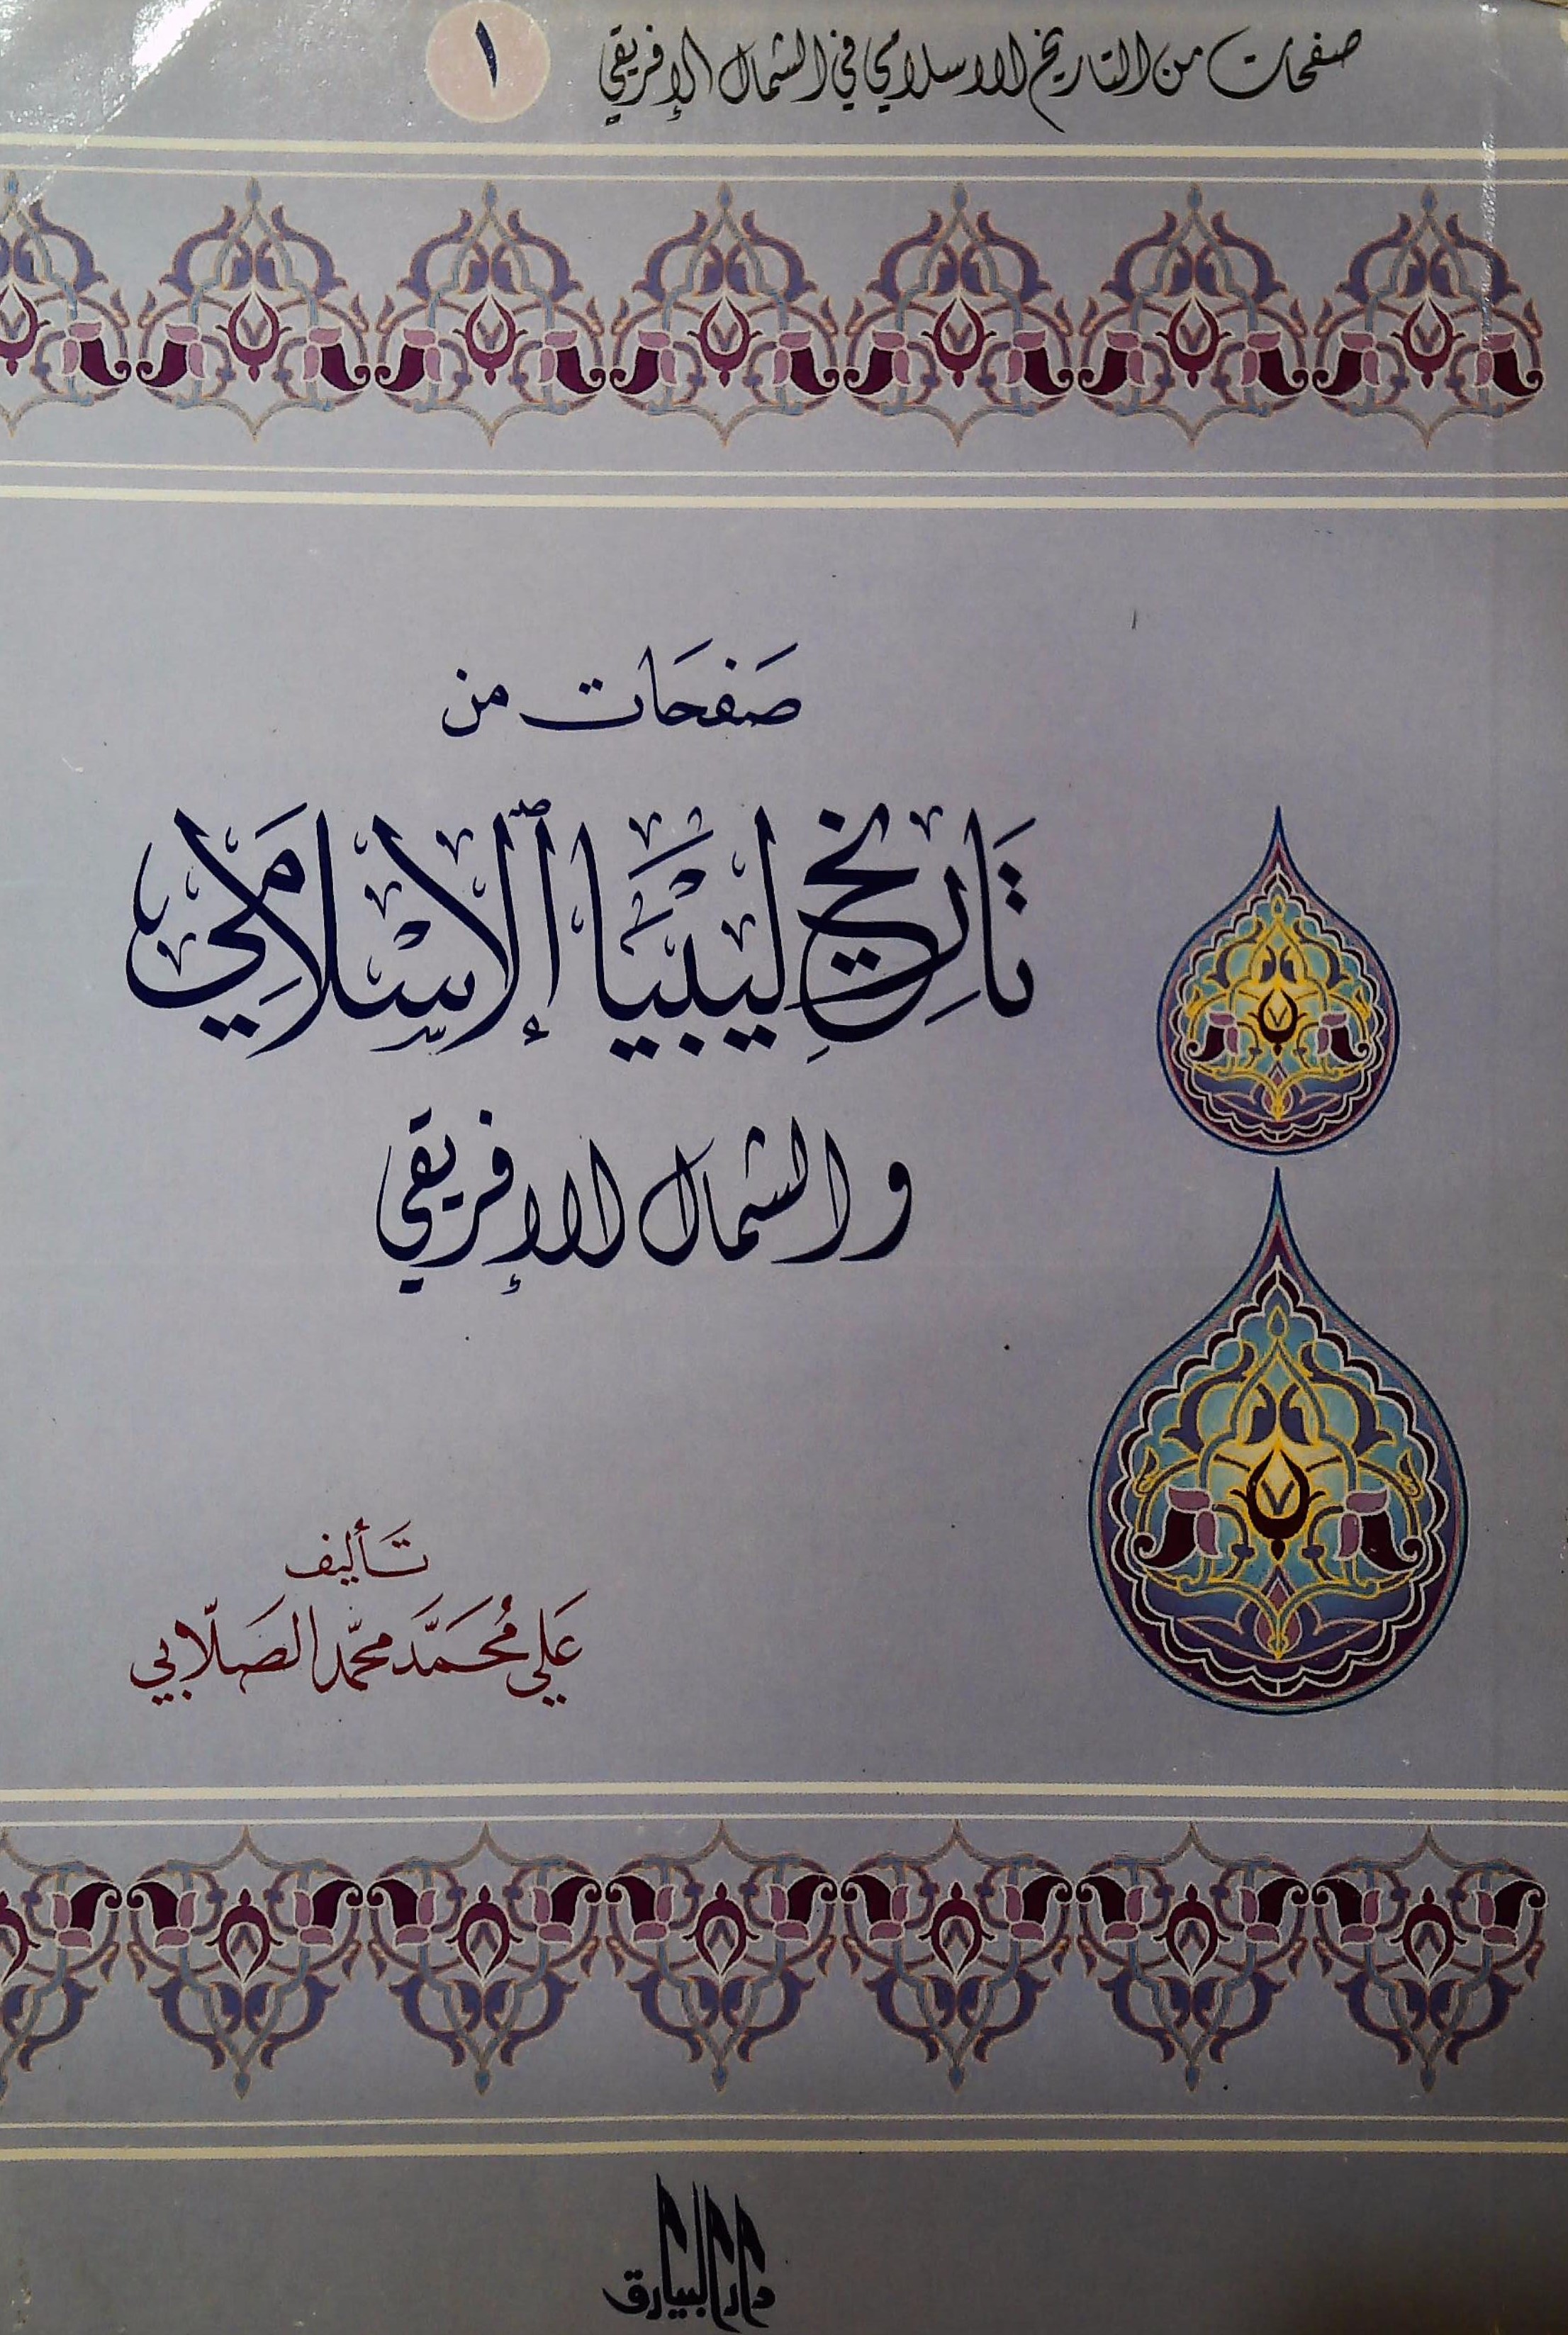 صفحات من التاريخ الاسلامي في الشمال الإفريقي ١
صَفحَات من
تَاريِخ ليبْيَا ٱلإسْلامَِي
والشمال الإفريقي
تَأليف
عَلي مُحَمَّد محمّد الصَلّابي
دار البيارق